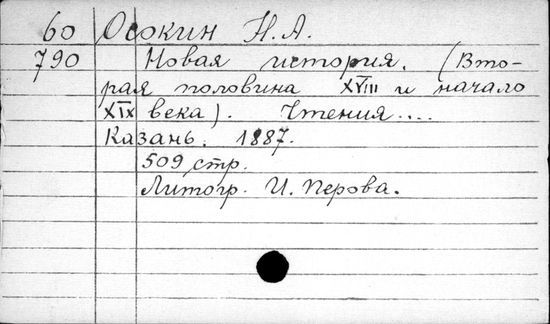 60 Осокин Н.А.
790 Новая история. (Вто-
рая половина XVIII и начало
XIX века). Чтения....
Казань. 1887.
509 стр.
Литогр. И. Перова.